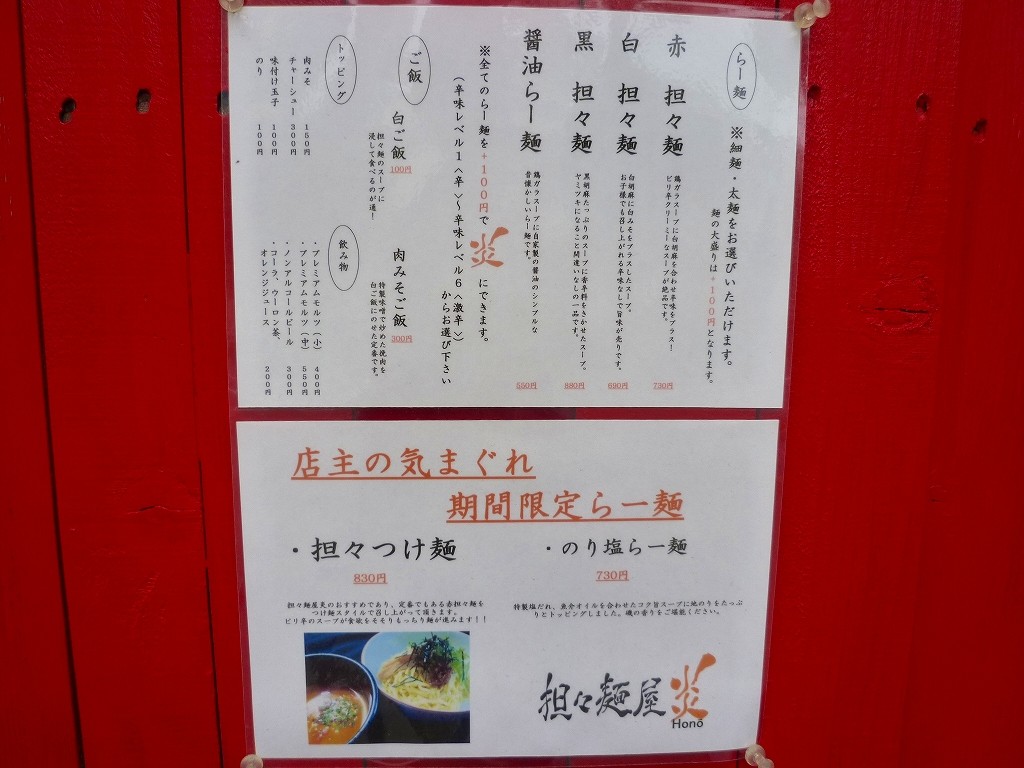 らー麺
※細麺・太麺をお選びいただけます。
麺の大盛りは+100円となります。
赤 担々麺
鶏ガラスープに白胡麻を合わせ辛味をプラス!
ピリ辛クリーミーなスープが絶品です。
730円
白 担々麺
白胡麻に白みそをプラスしたスープ。
お子様でも召し上がれる辛味なしで旨味が売りです。
690円
黒 担々麺
黒胡麻たっぷりのスープに香辛料をきかせたスープ。
ヤミツキになること間違いなしの一品です。
880円
醤油らー麺
鶏ガラスープに自家製の醤油のシンプルな
昔懐かしいらー麺です。
550円
※全てのらー麺を+100円で炎にできます。
(辛味レベル1〈辛〉~辛味レベル6〈激辛〉)
からお選び下さい
ご飯
白ご飯
100円
担々麺のスープに
浸して食べるのが通!
肉みそご飯
300円
特製味噌で炒めた挽肉を
白ご飯にのせた定番です。
トッピング
肉みそ 150円
チャーシュー 300円
味付け玉子 100円
のり 100円
飲み物
・プレミアムモルツ(小) 400円
・プレミアムモルツ(中) 550円
・ノンアルコールビール 300円
・コーラ、ウーロン茶、
オレンジジュース 200円
店主の気まぐれ
期間限定らー麺
・担々つけ麺
830円
担々麺屋炎のおすすめであり、定番でもある赤担々麺を
つけ麺スタイルで召し上がって頂きます。
ピリ辛のスープが食欲をそそりもっちり麺が進みます!!
・のり塩らー麺
730円
特製塩だれ、魚介オイルを合わせたコク旨スープに地のりをたっぷ
りとトッピングしました。磯の香りをご堪能ください。
担々麺屋炎
Honō